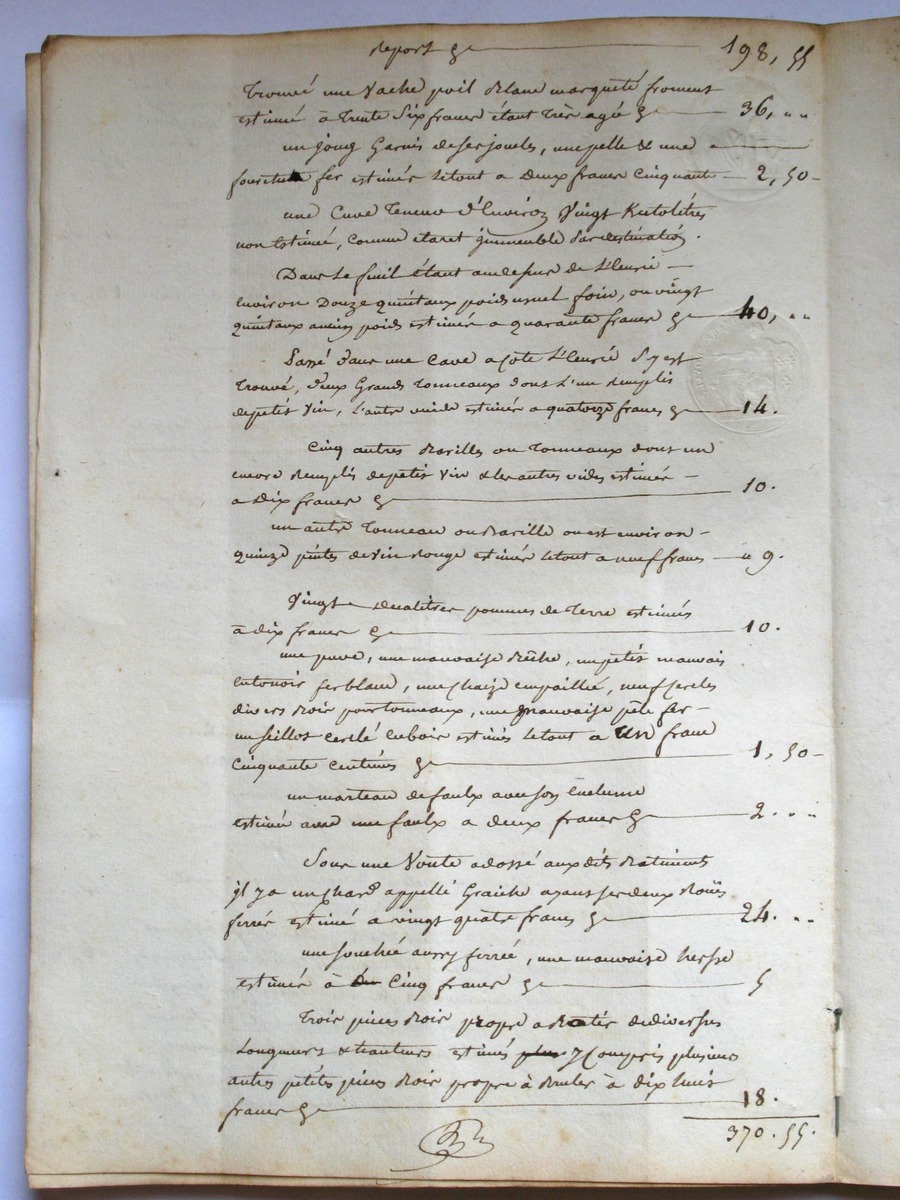 Report 198, 55
Trouvé une vache poil blanc marqueté froment
estimé à trente six francs étant très agé 36, ..
un joug garnis de ses joucles, une pelle & une
fourche fer estimés le tout a deux francs cinquante 2, 50
une Cuve teneur d'Environ vingt Ectolitres
non Estimée, Comme etant immeuble par destination.
Dans le feuil étant au desus de l'Ecurie
Environ Douze quintaux poids usuel foin, ou vingt
quintaux anciens poids estimés a quarante francs 40, ..
Passé dans une Cave a côté L'Ecurié s'y est
trouvé, deux Grands tonneaux dont l'un remplis
de petit vin, l'autre vuide estimés a quatorze francs 14.
Cinq autres Barilles ou tonneaux dont un
encore Remplis de petit vin & les autres vides estimés
a dix francs 10.
un autre tonneau ou Barille ou est environ
quinze pintes de vin Rouge estimés le tout a neuf francs 9.
Vingt decalitres pommes de terre estimés
à dix francs 10.
une , une mauvaise Bêche, un petit mauvais
Entonoir fer blanc, une chaize empaillié, neuf cercles
divers Bois pour tonneaux, une mauvaise pêle fer
un seillot cerclé en bois estimés le tout a un franc
Cinquante centimes 1, 50
un marteau de faulx avec son Enclume
estimée avec une faulx a deux francs 2 ..
Sous une Voute adossé aux dits Batiments
il y a un Char appellé Graiche ayant ses deux Roues
ferrés estimé a vingt quatre francs 24. ..
une aussy ferrée, une mauvaise herse
estimés à Cinq francs 5
Trois pieces Bois propre a Batir de diverses
Longueurs & hauteurs estimés plus y Compris plusieurs
autres petites pieces Bois propre à Bruler à dix huit
francs 18.
370. 55.